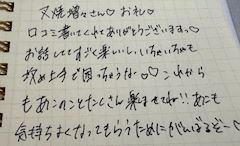 叉焼燐々さん♡お礼♡
口コミ書いてくれてありがとうございますっ♡
お話しててすごく楽しいし、いちゃいちゃも
攻め上手で困っちゃうな〜♡♡これから
もあこのことたくさん楽ませてね!!あこも
気持ちよくなってもらうためにがんばるぞー♡